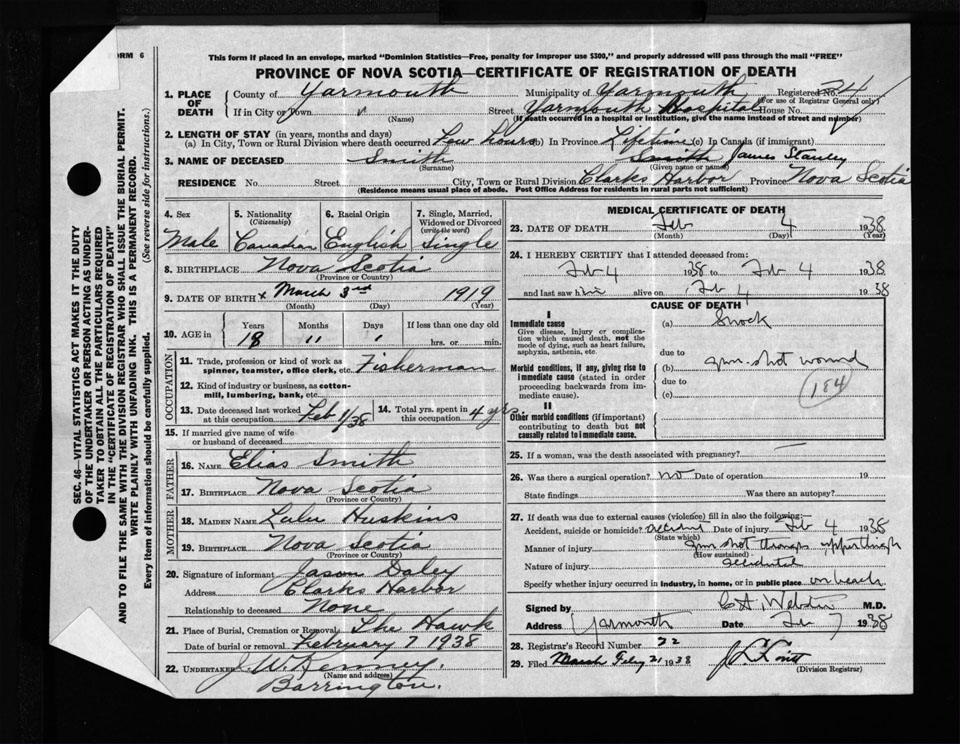 FORM 6
This form if placed in an envelope, marked "Dominion Statistics—Free, penalty for improper use $300," and properly addressed will pass through the mail "FREE"
PROVINCE OF NOVA SCOTIA—CERTIFICATE OF REGISTRATION OF DEATH
1. PLACE OF DEATH
County of Yarmouth Municipality of Yarmouth Registered No. 74
(For use of Registrar General only)
If in City or Town Street Yarmouth Hospital House No.
(Name) (If death occurred in a hospital or institution, give the name instead of street and number)
2. LENGTH OF STAY (in years, months and days)
(a) In City, Town or Rural Division where death occurred Few hours (b) In Province Lifetime (c) In Canada (if immigrant)
3. NAME OF DECEASED Smith Smith James Stanley
(Surname) (Given name or names)
RESIDENCE No. Street City, Town or Rural Division Clarks Harbor Province Nova Scotia
(Residence means usual place of abode. Post Office Address for residents in rural parts not sufficient)
4. Sex Male
5. Nationality (Citizenship) Canadian
6. Racial Origin English
7. Single, Married, Widowed or Divorced (write the word) Single
8. BIRTHPLACE Nova Scotia
(Province or Country)
9. DATE OF BIRTH x March 3rd 1919
(Month) (Day) (Year)
10. AGE in Years Months Days If less than one day old
18 11 1 hrs. or min.
OCCUPATION
11. Trade, profession or kind of work as spinner, teamster, office clerk, etc. Fisherman
12. Kind of industry or business, as cotton-mill, lumbering, bank, etc.
13. Date deceased last worked at this occupation Feb 1/38
14. Total yrs. spent in this occupation 4 yrs
15. If married give name of wife or husband of deceased
FATHER
16. NAME Elias Smith
17. BIRTHPLACE Nova Scotia
(Province or Country)
MOTHER
18. MAIDEN NAME Lulu Huskins
19. BIRTHPLACE Nova Scotia
(Province or Country)
20. Signature of informant Jason Daley
Address Clarks Harbor
Relationship to deceased None
21. Place of Burial, Cremation or Removal The Hawk
Date of burial or removal February 7 1938
22. UNDERTAKER J. W. Kenney.
(Name and address)
Barrington.
MEDICAL CERTIFICATE OF DEATH
23. DATE OF DEATH Feb 4 1938
(Month) (Day) (Year)
24. I HEREBY CERTIFY that I attended deceased from:
Feb 4 1938 to Feb 4 1938
and last saw him alive on Feb 4 1938
CAUSE OF DEATH
I
Immediate cause
Give disease, injury or complication which caused death, not the mode of dying, such as heart failure, asphyxia, asthenia, etc.
(a) Shock
due to
Morbid conditions, if any, giving rise to immediate cause (stated in order proceeding backwards from immediate cause).
(b) gun-shot wound
due to
(c) (184)
II
Other morbid conditions (if important) contributing to death but not causally related to immediate cause.
25. If a woman, was the death associated with pregnancy?
26. Was there a surgical operation? No Date of operation 19
State findings Was there an autopsy?
27. If death was due to external causes (violence) fill in also the following:—
Accident, suicide or homicide? accident Date of injury Feb 4 1938
(State which)
Manner of injury gun shot through upper thigh
(How sustained)
Nature of injury accidental
Specify whether injury occurred in industry, in home, or in public place on beach
Signed by C.A. Webster M.D.
Address Yarmouth Date Feb 7 1938
28. Registrar's Record Number 22
29. Filed March 21 1938
(Division Registrar)
SEC. 46—VITAL STATISTICS ACT MAKES IT THE DUTY
OF THE UNDERTAKER OR PERSON ACTING AS UNDER-
TAKER TO OBTAIN ALL THE PARTICULARS REQUIRED
IN THE "CERTIFICATE OF REGISTRATION OF DEATH"
AND TO FILE THE SAME WITH THE DIVISION REGISTRAR WHO SHALL ISSUE THE BURIAL PERMIT.
WRITE PLAINLY WITH UNFADING INK. THIS IS A PERMANENT RECORD.
Every item of information should be carefully supplied. (See reverse side for instructions.)